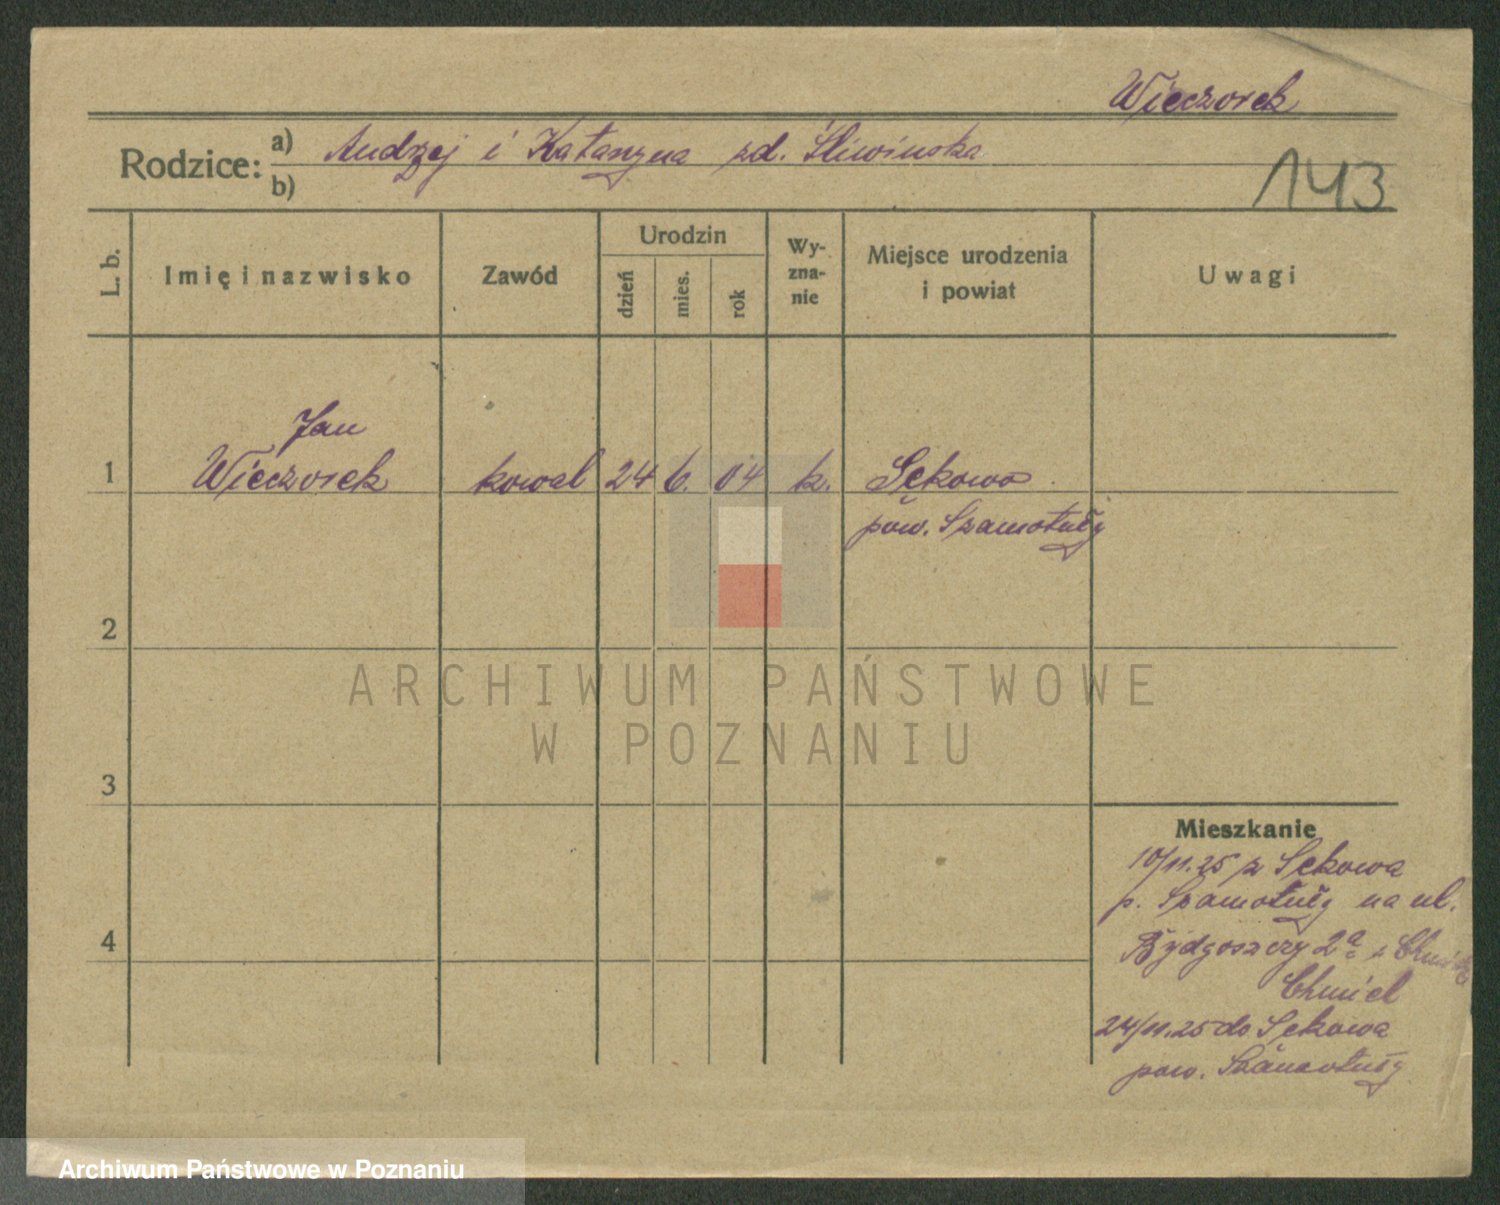 Wieczorek
Rodzice: a) Andrzej i Katarzyna zd. Śliwińska
b)
143
L. b.
Imię i nazwisko
Zawód
Urodzin
dzień
mies.
rok
Wy-
zna-
nie
Miejsce urodzenia
i powiat
Uwagi
Jan
1 Wieczorek kowal 24 6. 04 k. Sękowo
pow. Szamotuły
2
3
4
Mieszkanie
10/11.25 z Sękowa
p. Szamotuły na ul.
Bydgoszczy 2a
Chmiel
24/11.25 do Sękowa
pow. Szamotuły
ARCHIWUM PAŃSTWOWE
W POZNANIU
Archiwum Państwowe w Poznaniu